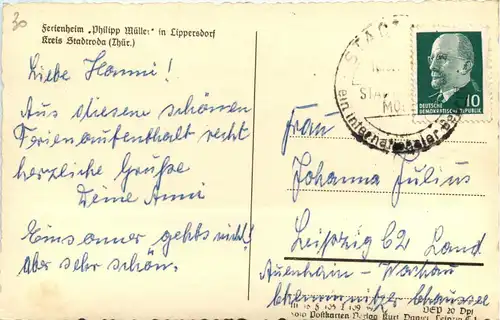 30
Ferienheim „Philipp Müller" in Lippersdorf
Kreis Stadtroda (Thür.)
Liebe Hanni!
Aus diesem schönen
Ferienaufenthalt recht
herzliche Grüße
Deine Anni
Einsamer gehts nicht!
Aber sehr schön.
STADT
ein internationaler
DEUTSCHE
DEMOKRATISCHE REPUBLIK
10
Frau
Johanna Julius
Leipzig C2 Land
Auenhain - Wachau
Chemnitzer Chaussee
DEP 20 Dpf
Foto Postkarten Verlag Kurt Leipzig